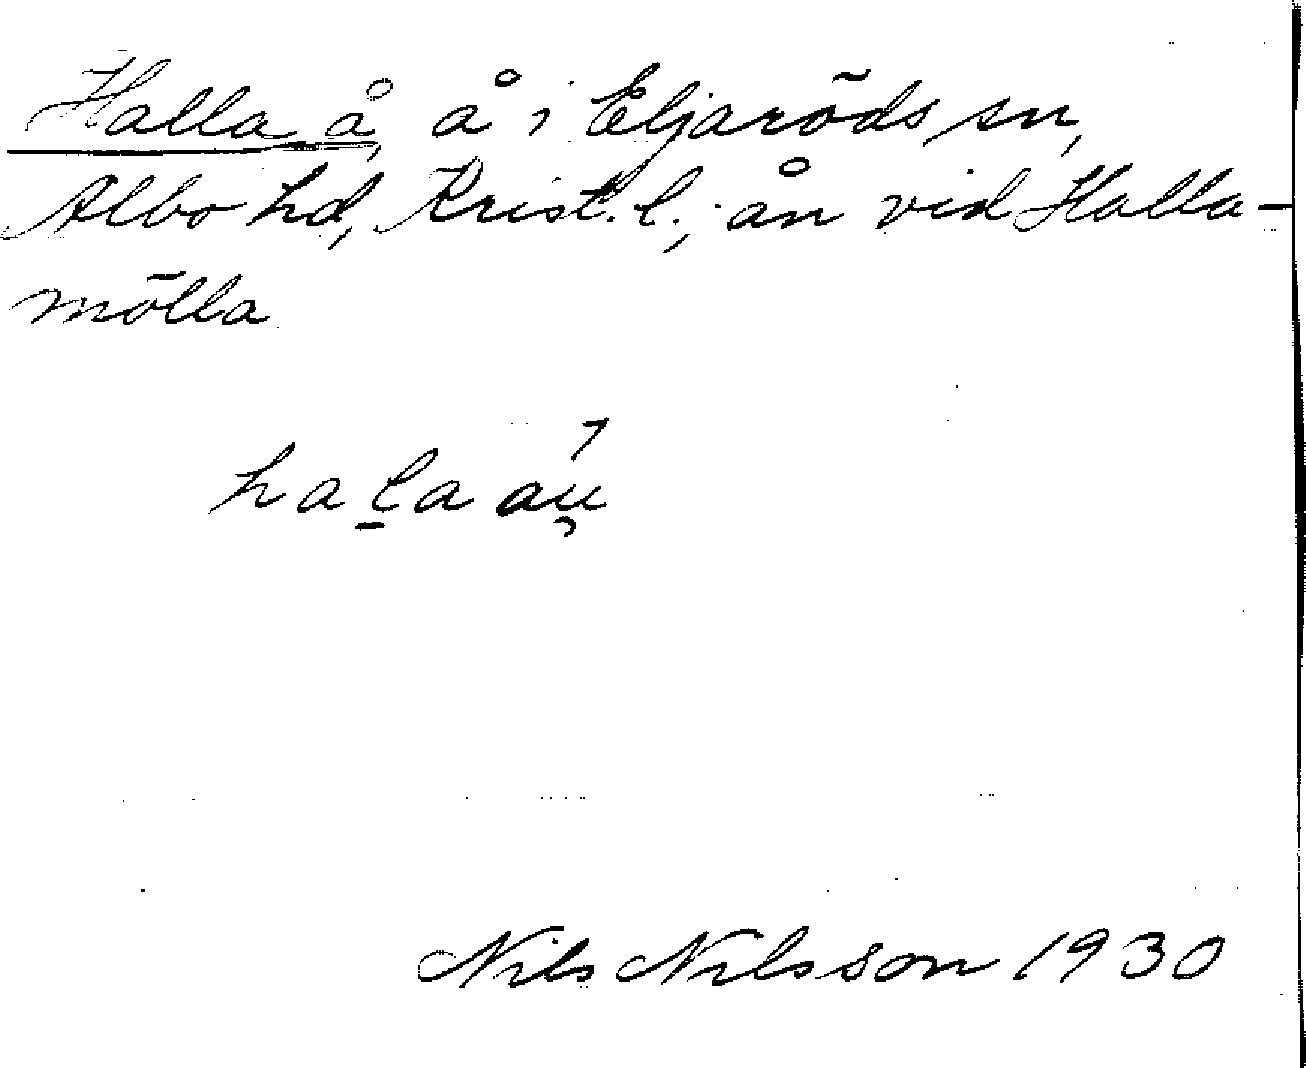 Halla å, å i Eljaröds sn,
Albo hd, Krist. l.; ån vid Halla-
mölla
hal̲aáu̯
Nils Nilsson 1930